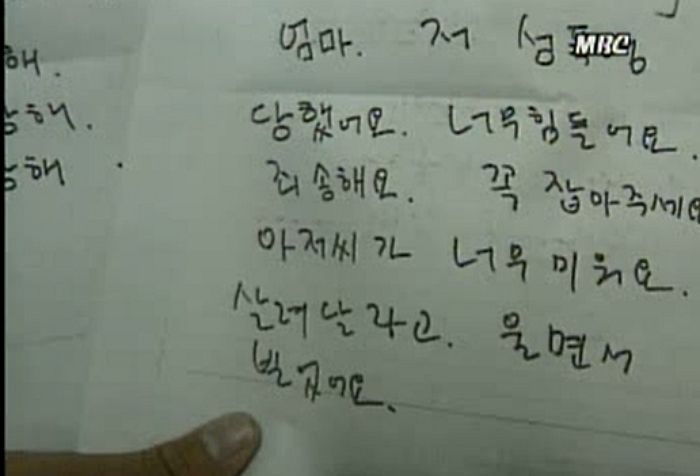 해.
해.
해
엄마. 저 성
MBC
당했어요. 너무힘들어요.
죄송해요. 꼭 잡아주세요
아저씨가 너무 미워요.
살려달라고. 울면서
빌었어요.